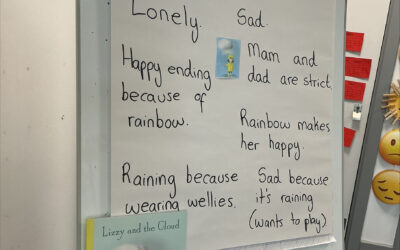 Lonely. Sad.
Happy ending
because of
rainbow.
Mam and
dad are strict.
Rainbow makes
her happy.
Raining because
wearing wellies.
Sad because
it's raining
(wants to play)
Lizzy and the Cloud